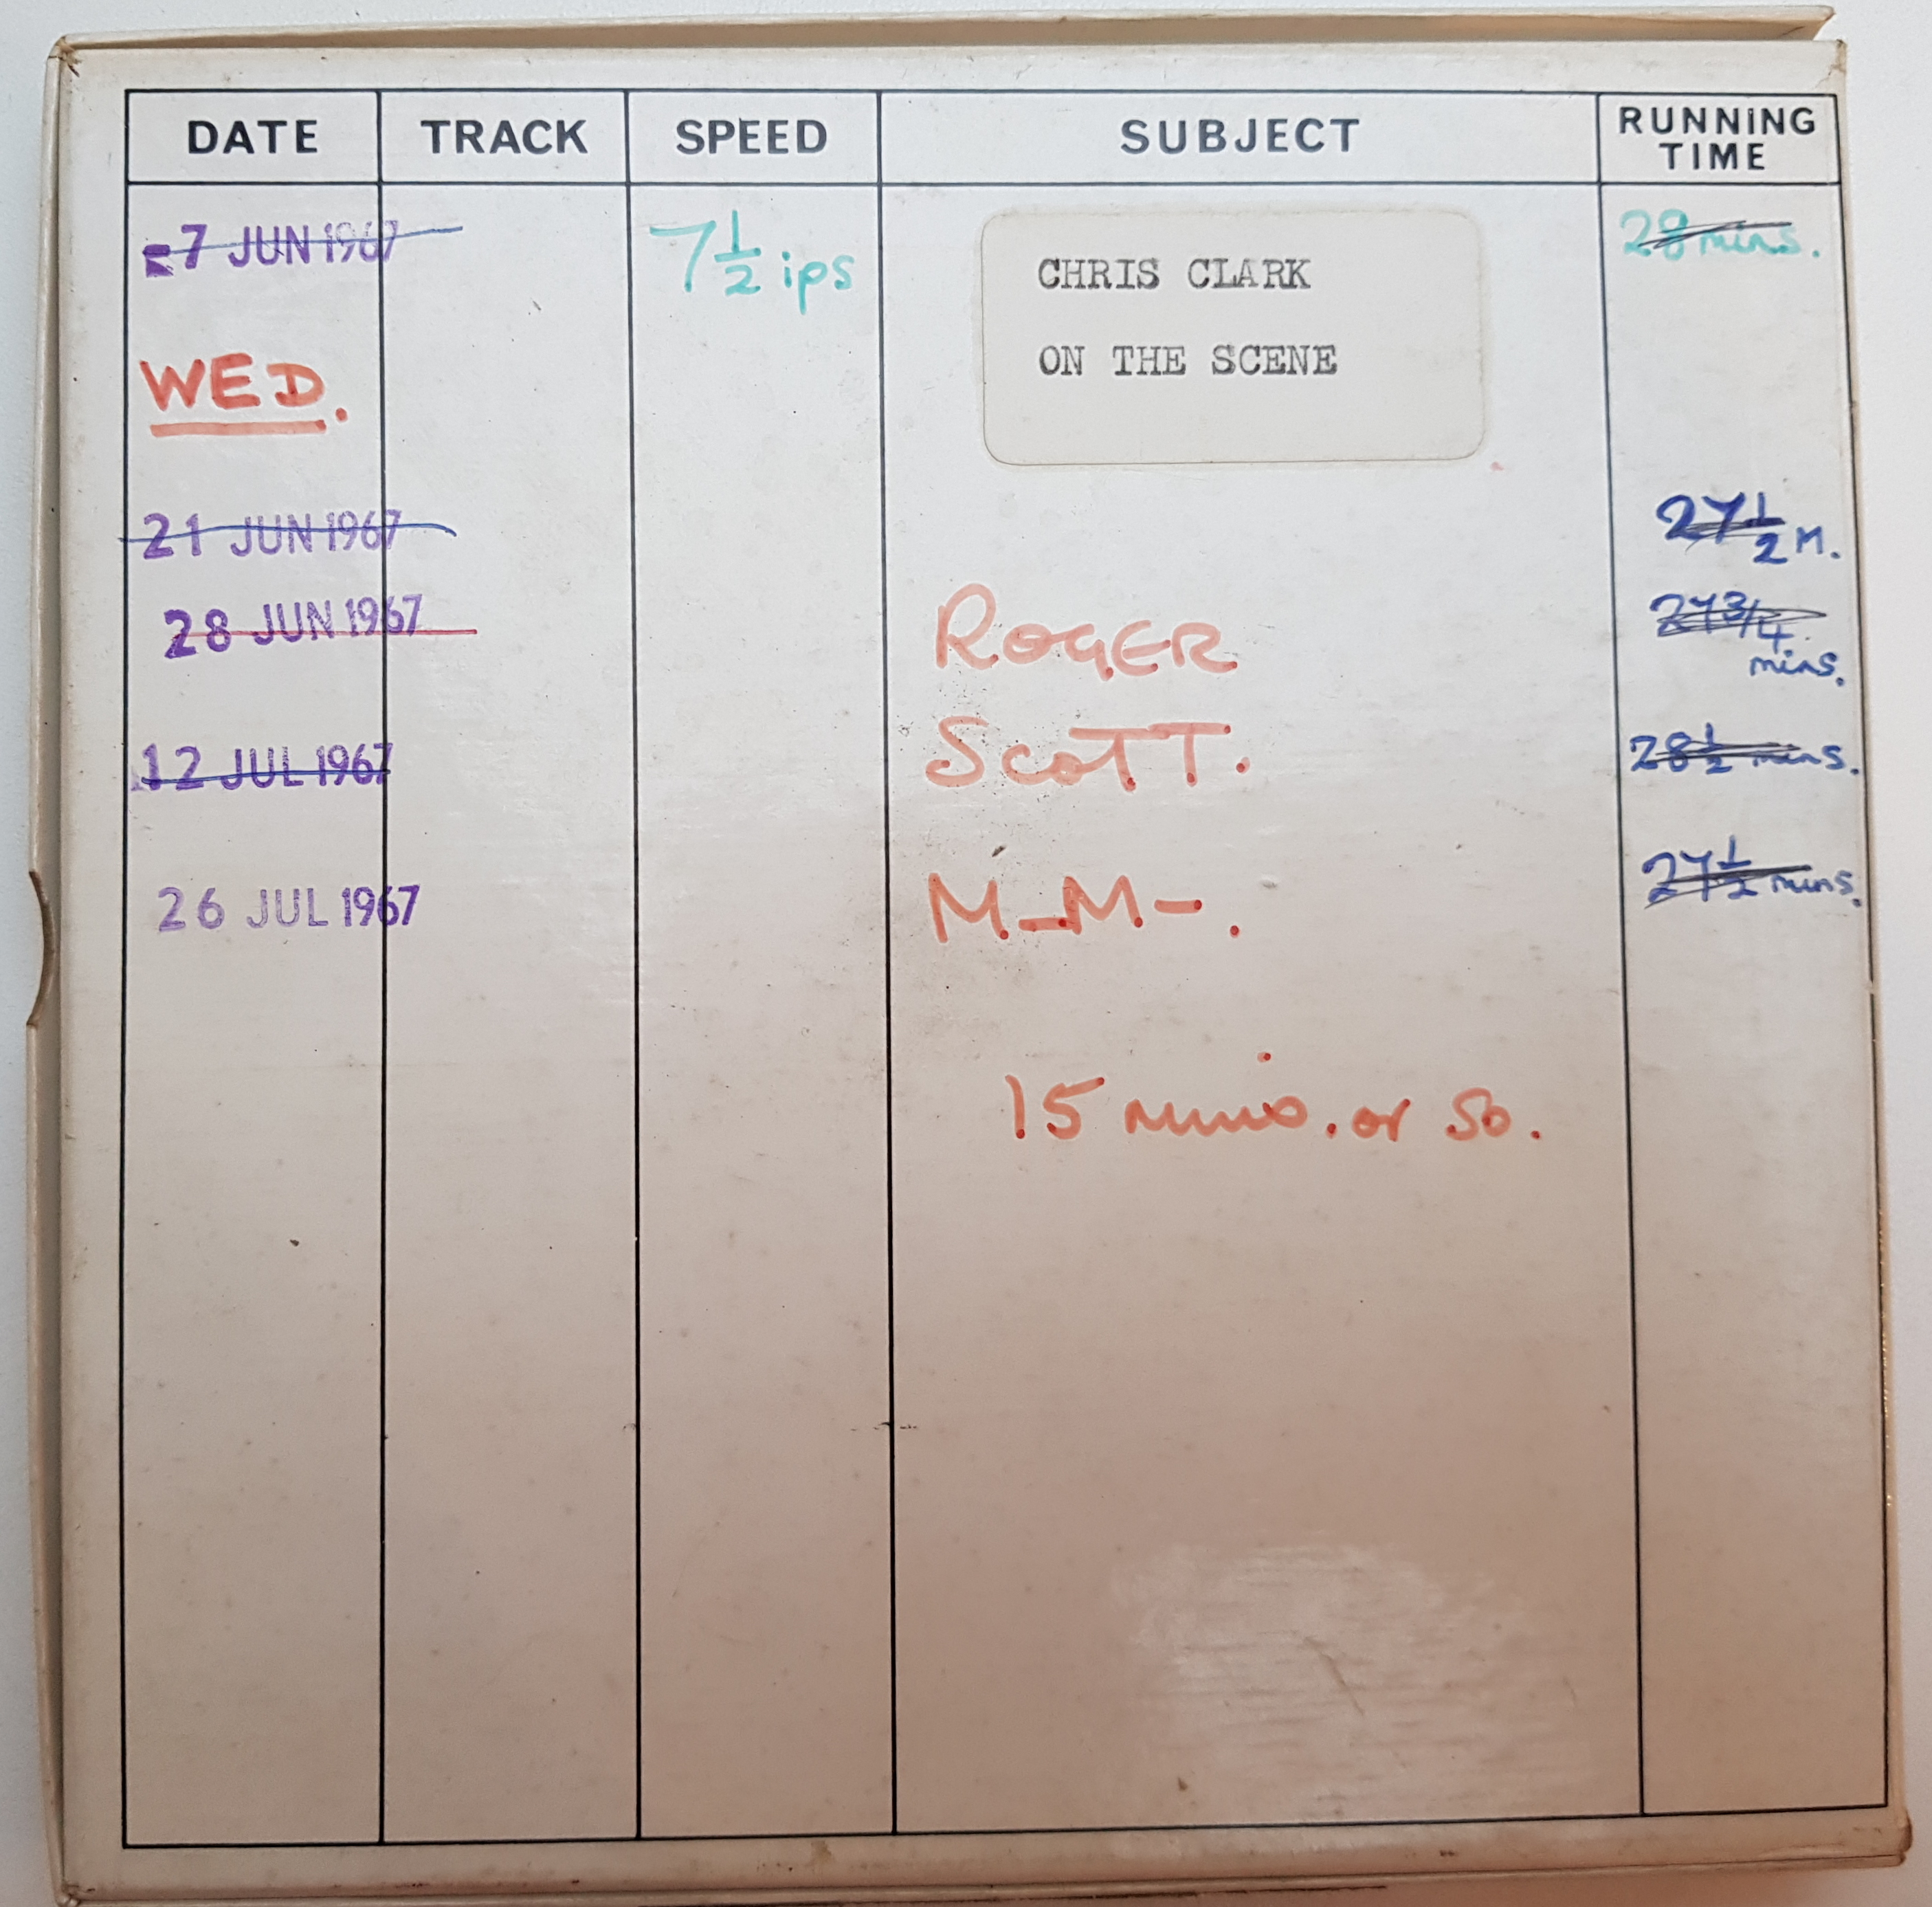 DATE TRACK SPEED SUBJECT RUNNING TIME
-7 JUN 1967 7 1/2 ips CHRIS CLARK 28 mins.
ON THE SCENE
WED.
21 JUN 1967 27 1/2 M.
28 JUN 1967 ROGER 27 3/4 mins.
12 JUL 1967 SCOTT. 28 1/2 mins.
26 JUL 1967 M-M-. 27 1/2 mins.
15 mins. or so.